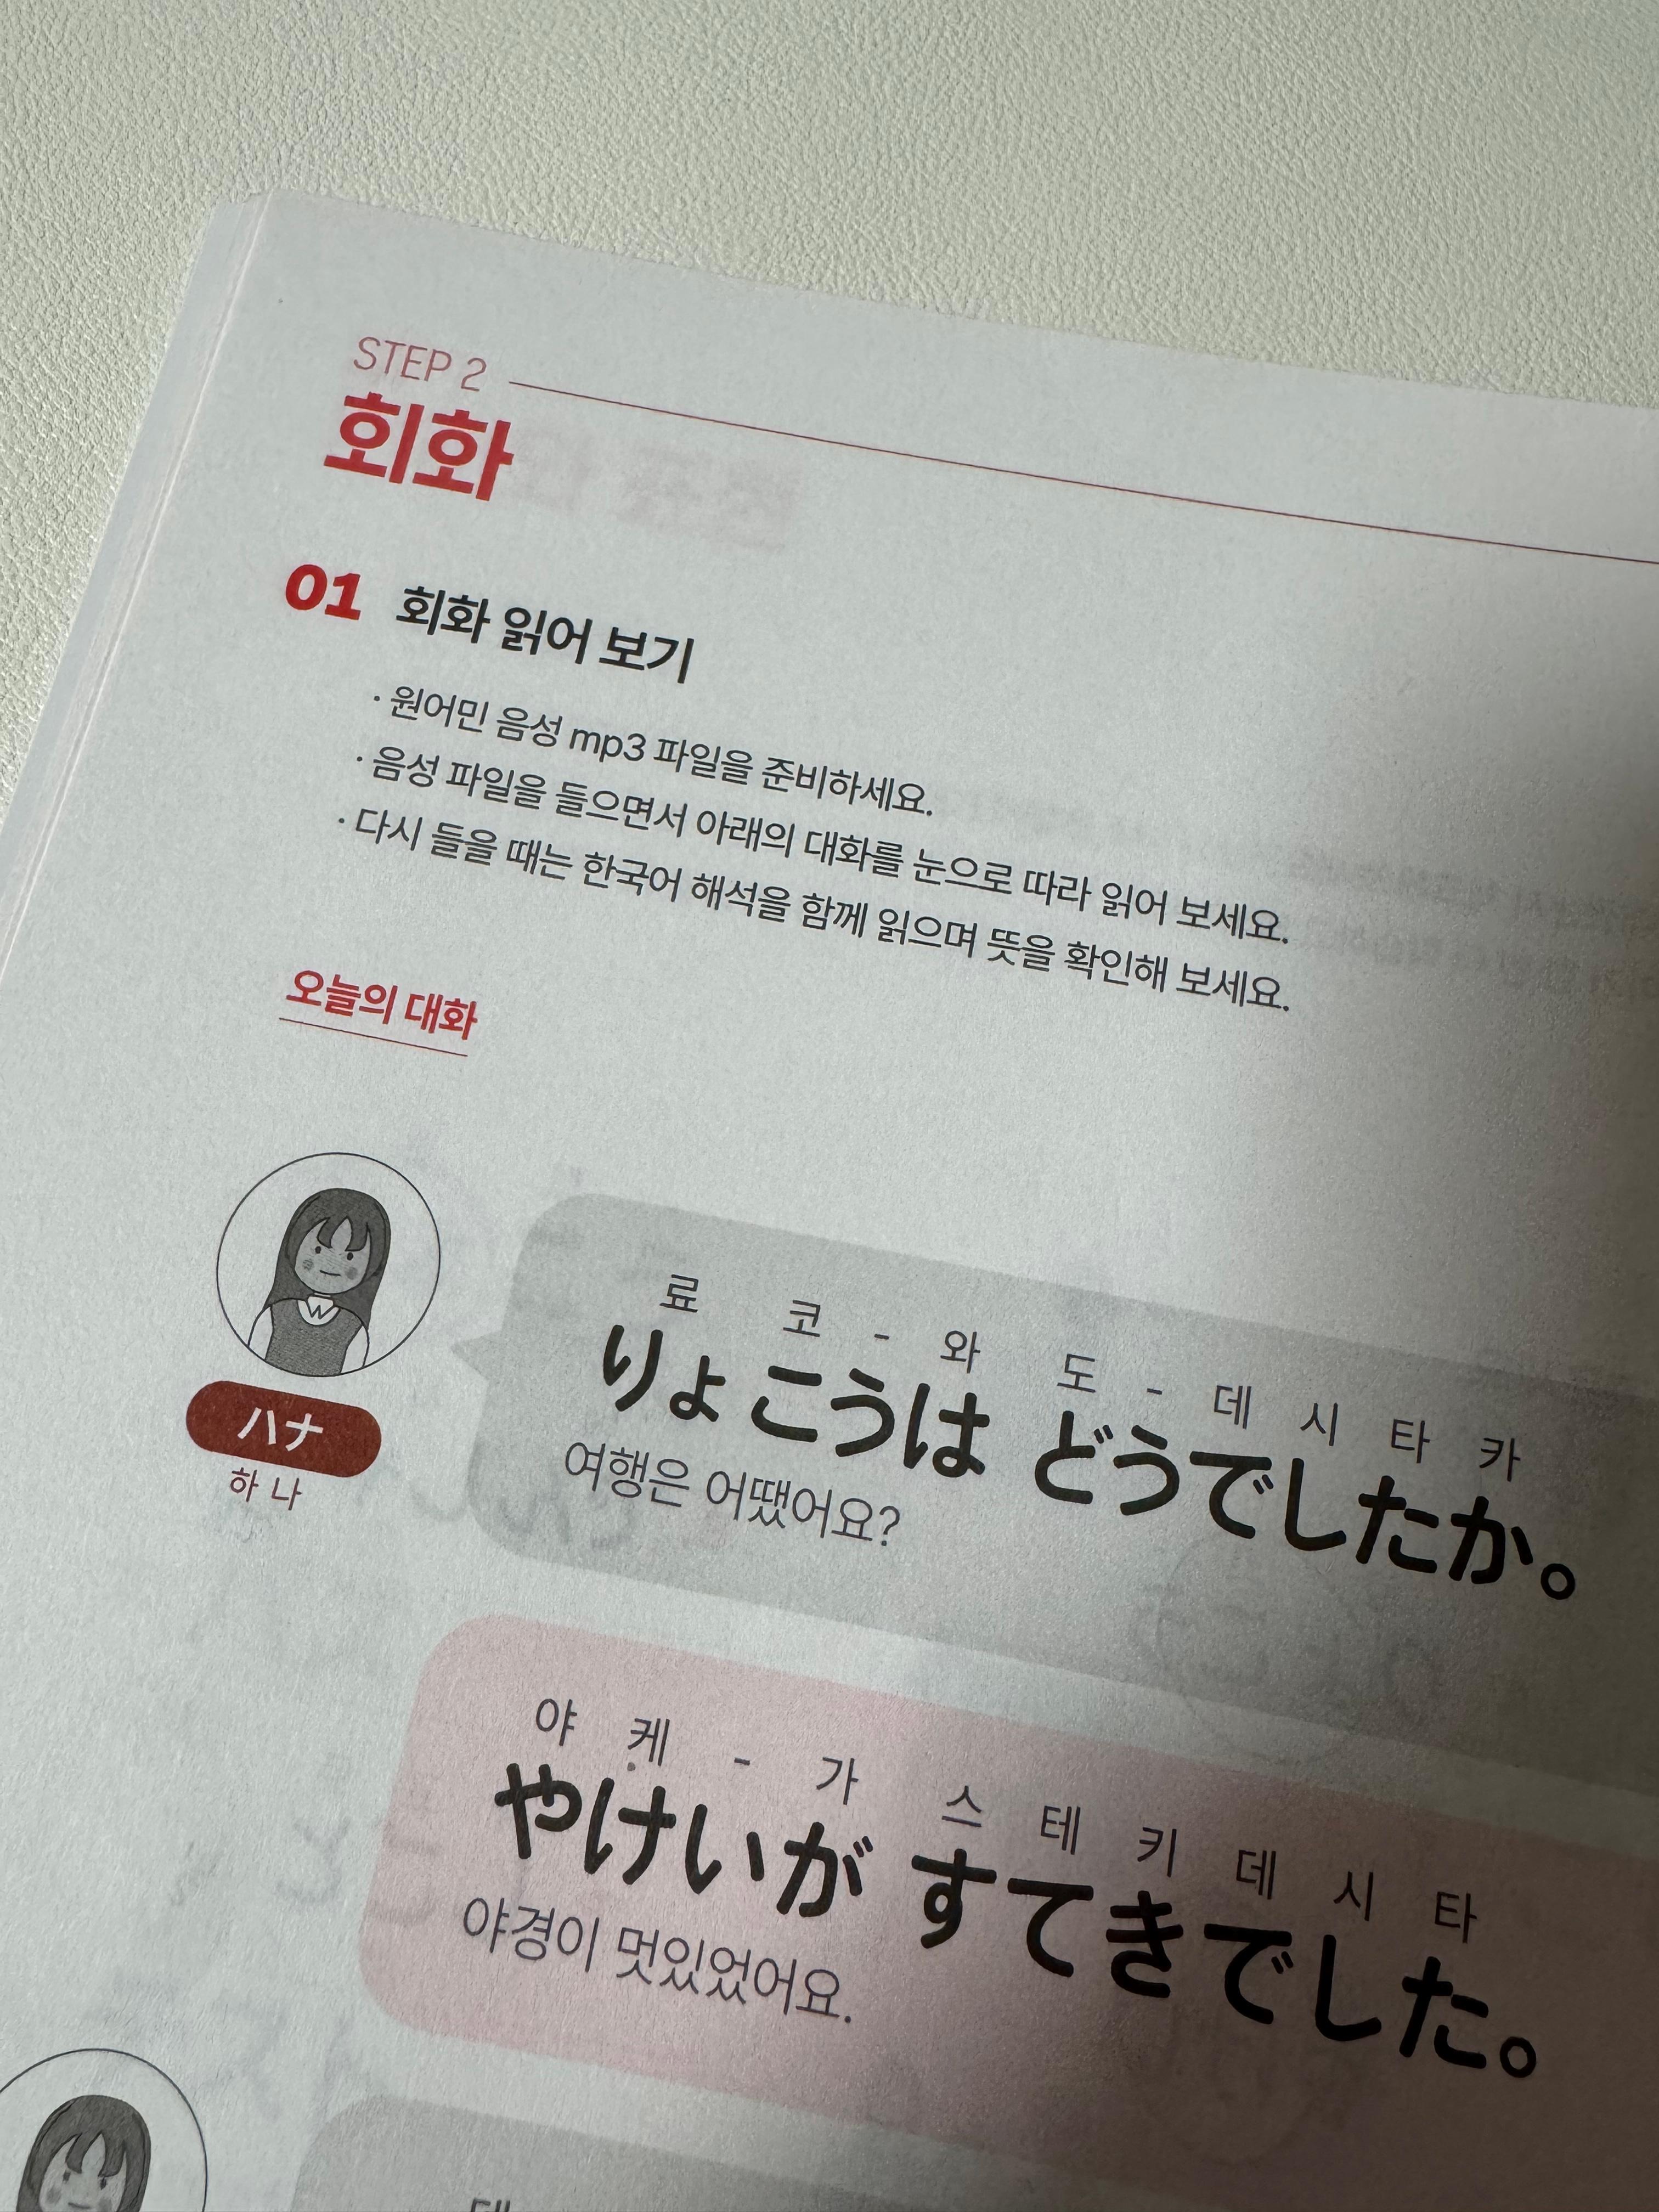 STEP 2
회화
01 회화 읽어 보기
· 원어민 음성 mp3 파일을 준비하세요.
· 음성 파일을 들으면서 아래의 대화를 눈으로 따라 읽어 보세요.
· 다시 들을 때는 한국어 해석을 함께 읽으며 뜻을 확인해 보세요.
오늘의 대화
ハナ
하 나
료 코 - 와 도 - 데 시 타 카
りょこうは どうでしたか。
여행은 어땠어요?
야 케 - 가 스 테 키 데 시 타
やけいが すてきでした。
야경이 멋있었어요.